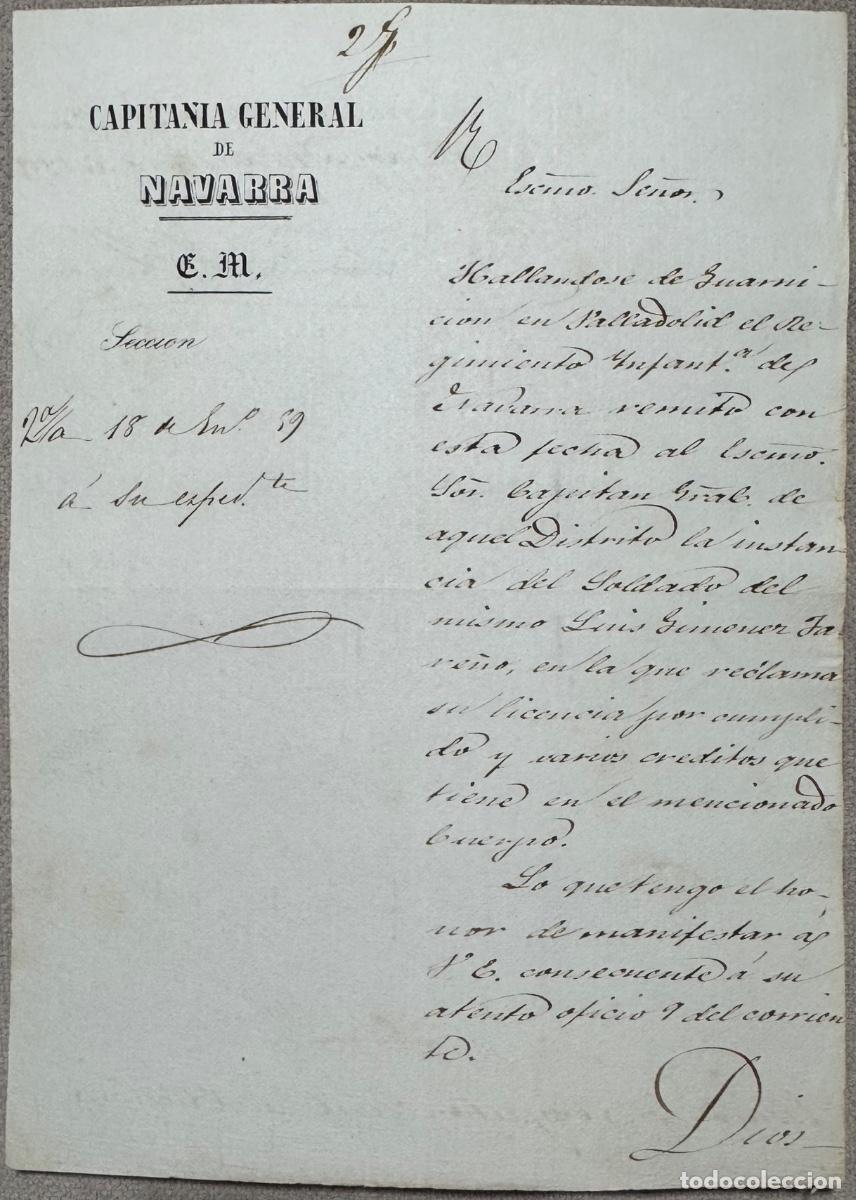 CAPITANIA GENERAL
DE
NAVARRA
E. M.
Seccion
18 de En.º 59
á su exped.te
Escmo. Señor.
Hallandose de Guarni-
cion en Valladolid el Re-
gimiento Infant.a de
Navarra remito con
esta fecha al Escmo.
Sõr. Capitan Gral. de
aquel Distrito la instan
cia del Soldado del
mismo Luis Gimenez Ja-
reño, en la que reclama
su licencia por cumpli-
do y varios creditos que
tiene en el mencionado
Cuerpo.
Lo que tengo el ho-
nor de manifestar á
V. E. consecuente á su
atento oficio 9 del corrien
te.
Dios
todocoleccion